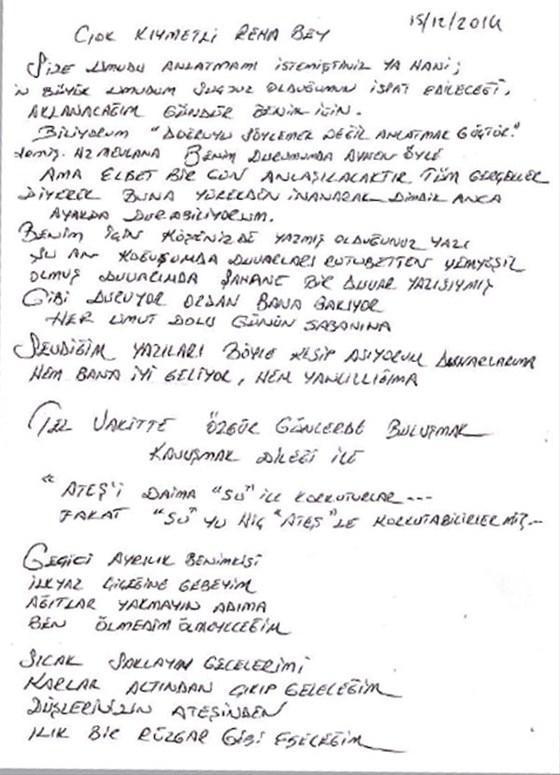 15/12/2014
ÇOK KIYMETLİ REHA BEY
SİZE UMUDU ANLATMAMI İSTEMİŞTİNİZ YA HANİ;
EN BÜYÜK UMUDUM SUÇSUZ OLDUĞUMUN İSPAT EDİLECEĞİ,
AKLANACAĞIM GÜNDÜR BENİM İÇİN.
BİLİYORUM "DOĞRUYU SÖYLEMEK DEĞİL ANLATMAK GÜÇTÜR."
demiş. HZ MEVLANA BENİM DURUMUMDA AYNEN ÖYLE
AMA ELBET BİR GÜN ANLAŞILACAKTIR TÜM GERÇEKLER
DİYEREK BUNA YÜREKDEN İNANARAK DİMDİK ANCA
AYAKDA DURABİLİYORUM.
BENİM İÇİN KÖŞENİZDE YAZMIŞ OLDUĞUNUZ YAZI
ŞU AN KOĞUŞUMDA DUVARLARI RUTUBETTEN YEMYEŞİL
OLMUŞ DUVARIMDA ŞAHANE BİR DUVAR YAZISIYMIŞ
GİBİ DURUYOR ORDAN BANA BAKIYOR
HER UMUT DOLU GÜNÜN SABAHINA
SEVDİĞİM YAZILARI BÖYLE KESİP ASIYORUM DUVARLARIMA
HEM BANA İYİ GELİYOR, HEM YANLIZLIĞIMA
TEZ VAKİTTE ÖZGÜR GÜNLERDE BULUŞMAK
KAVUŞMAK DİLEĞİ İLE
"ATEŞ'İ DAİMA "SU" İLE KORKUTURLAR---
FAKAT "SU"YU HİÇ "ATEŞ"LE KORKUTABİLİRLER Mİ?---
GEÇİCİ AYRILIK BENİMKİSİ
İLKYAZ ÇİÇEĞİNE GEBEYİM
AĞITLAR YAKMAYIN ADIMA
BEN ÖLMEDİM ÖLMEYECEĞİM
SICAK SAKLAYIN GECELERİMİ
KARLAR ALTINDAN ÇIKIP GELECEĞİM
DÜŞLERİNİZİN ATEŞİNDEN
ILIK BİR RÜZGAR GİBİ ESECEĞİM